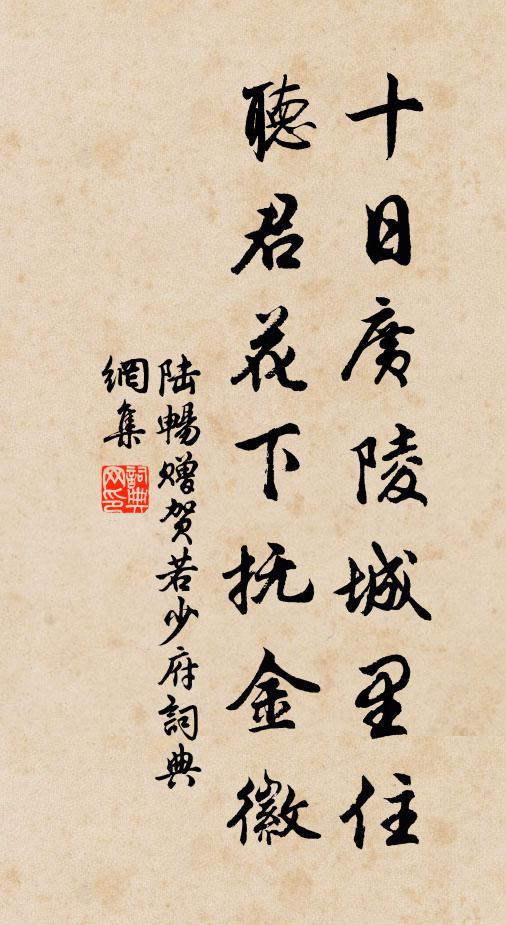 十日廣陵城里住
聽君花下抚金徽
陆暢赠贺若少府詞典
網集
詞典網印